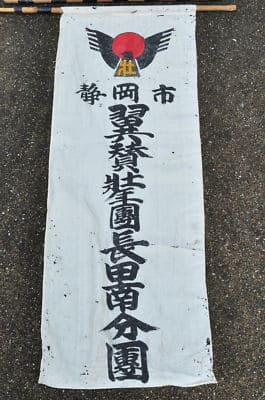 壮
静岡市
翼賛壮年團長田南分團